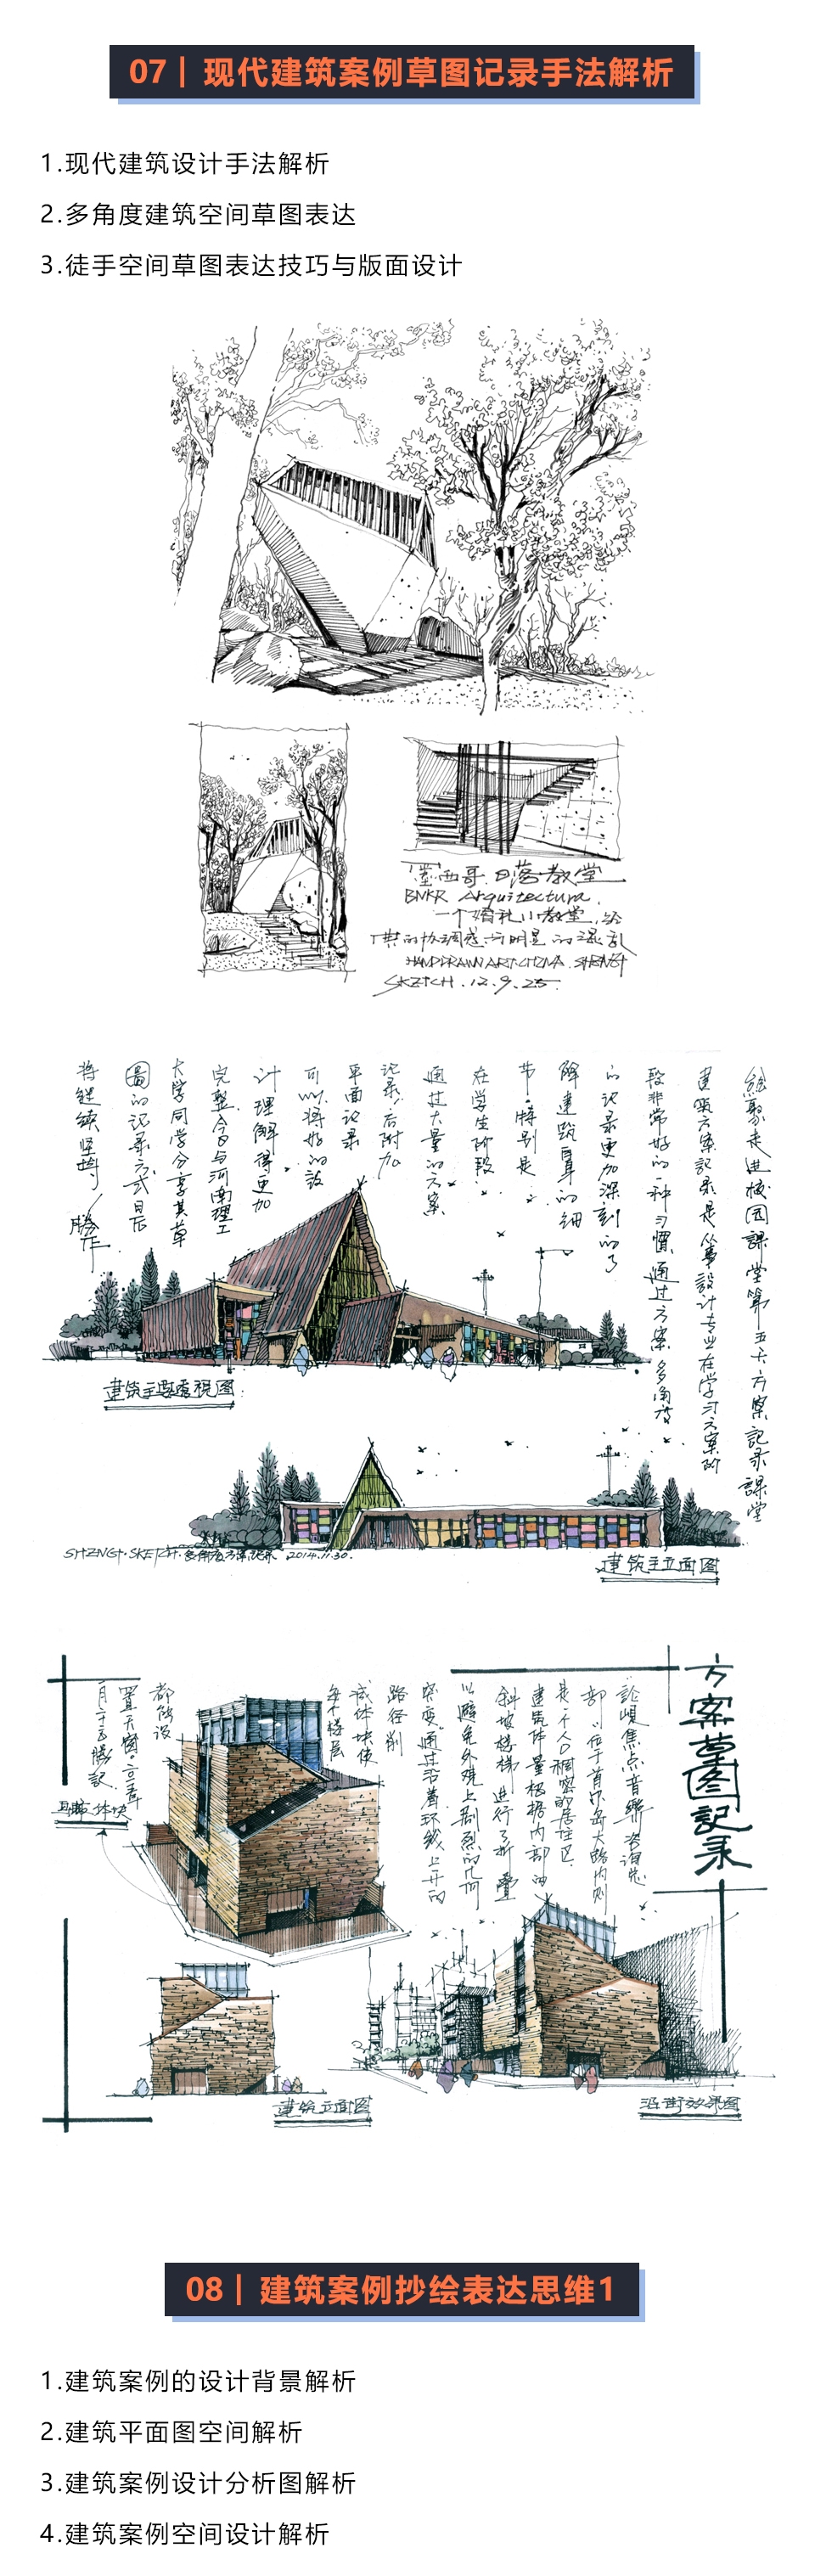 07｜现代建筑案例草图记录手法解析
1.现代建筑设计手法解析
2.多角度建筑空间草图表达
3.徒手空间草图表达技巧与版面设计
墨西哥.日落教堂
BNKR Arquitectura.
一个婚礼小教堂,
的协调感与明显的混乱
HANDDRAWN ART CHINA. SHENGT
SKETCH.12.9.25.
绘聚走进校园课堂第五天方案記录課堂
建筑方案記录是从事設计专业在学习方案阶
段非常好的一种习慣,通过方案多角度
的记录更加深刻的了
解建筑自身的细
节.特别是
在学生阶段
通过大量的方案
记录.后附加
平面记录
可以将好的設
计理解得更加
完整.今日与河南理工
大学同学分享其草
圖的记录方式.日后
将继续坚持
勝作
建筑主要透視图
SHENGT.SKETCH.多角度方案记录 2014.11.30.
建筑主立面图
方案草图記录
論峴焦点音樂咨询总
部,位于首尔岛大路内侧
是一个人口稠密的居住区.
建筑体量根据内部的
斜坡楼梯 进行了折叠
以避免外观上剧烈的几何
突变.通过沿着环线上升的
路径削
减体块使
每个楼层
都能设
置天窗.
建筑立面图
沿街效果图
08｜建筑案例抄绘表达思维1
1.建筑案例的设计背景解析
2.建筑平面图空间解析
3.建筑案例设计分析图解析
4.建筑案例空间设计解析